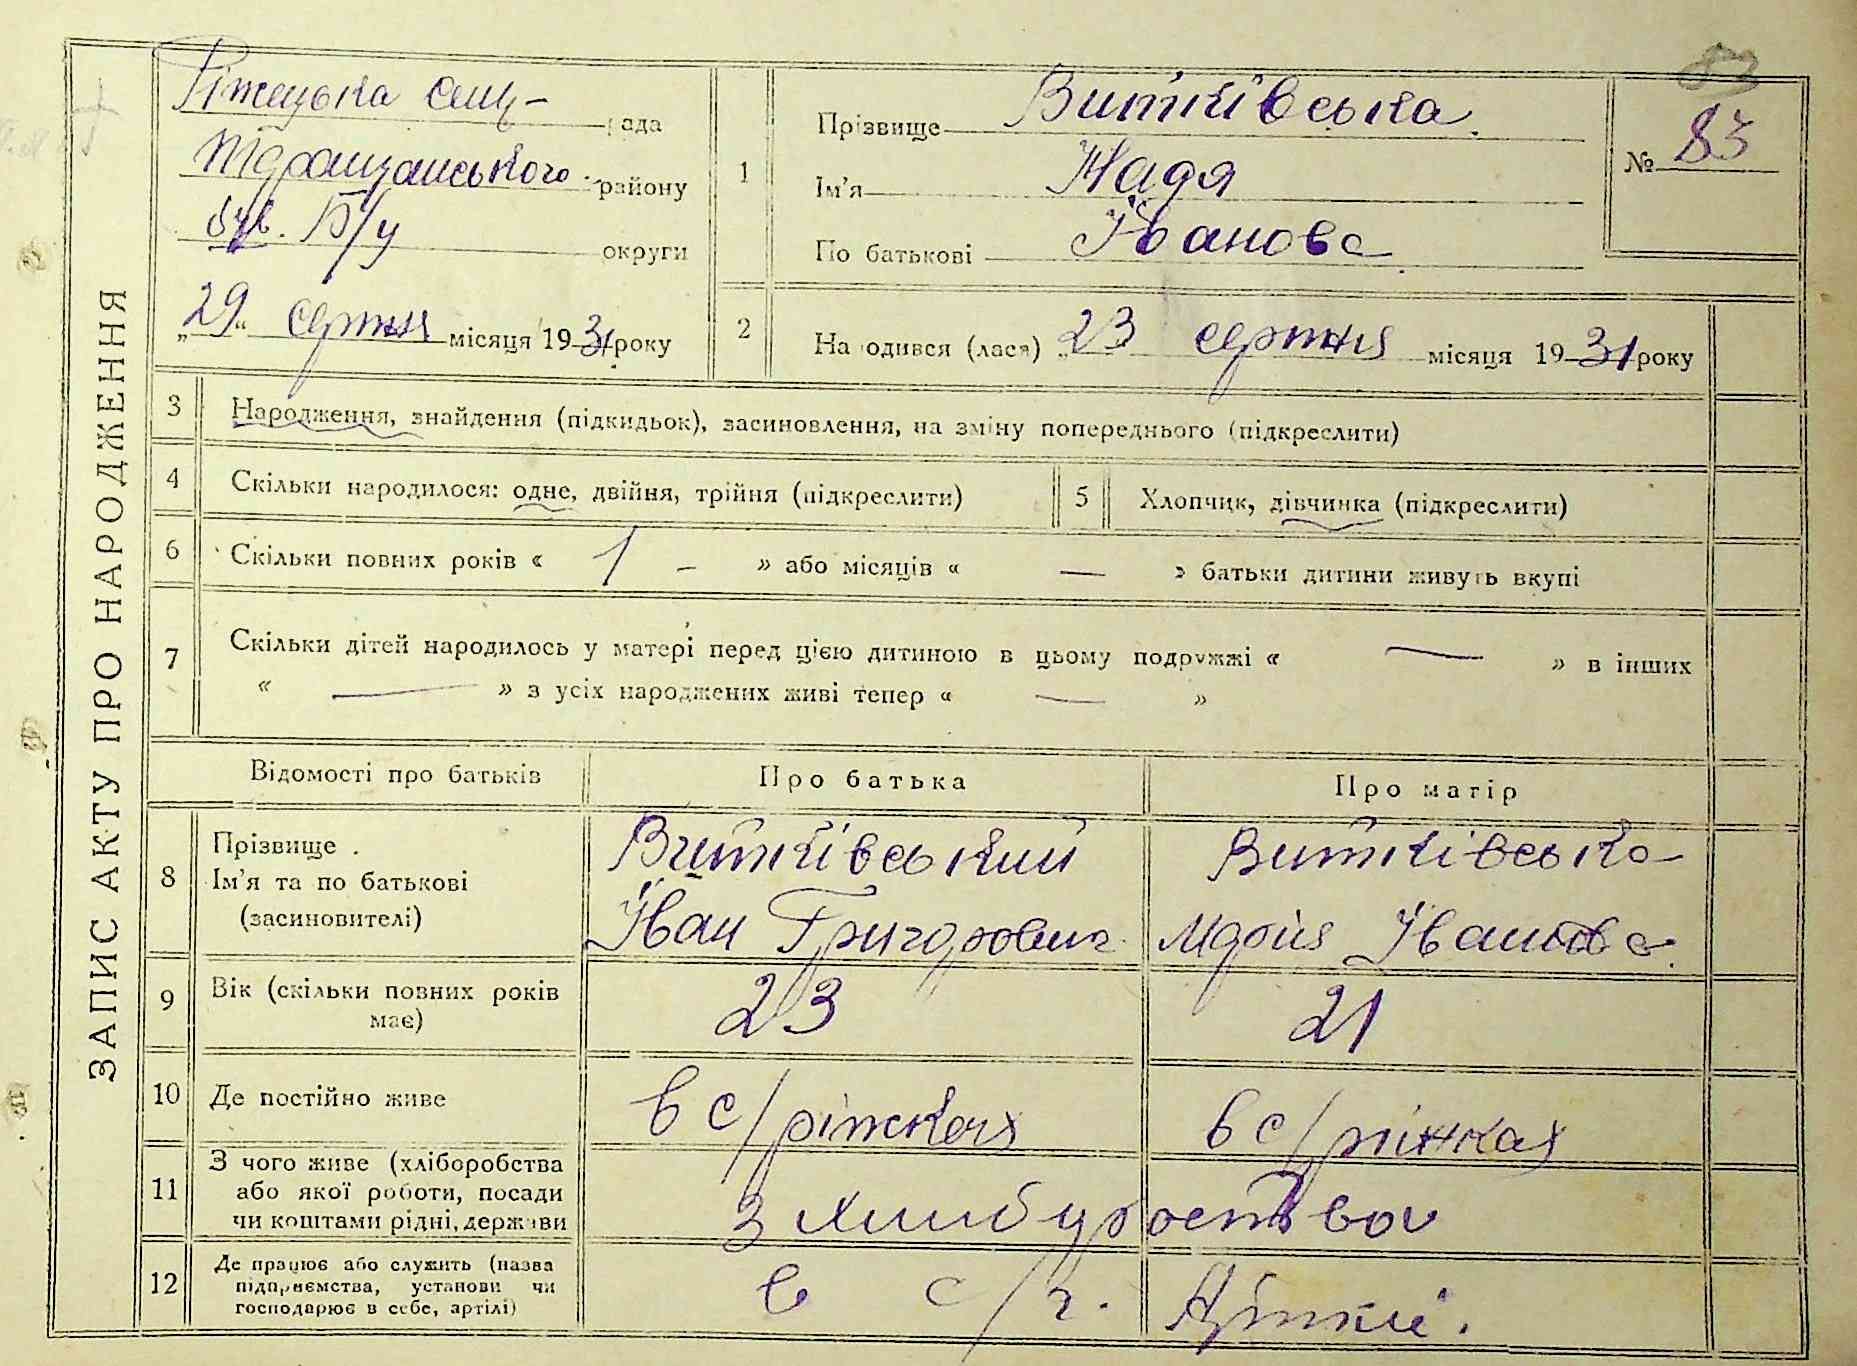 ЗАПИС АКТУ ПРО НАРОДЖЕННЯ
Ріжецька Селищ- рада
району
був. Б/Ц округи
„29“ серпня місяця 1931 року
1
Прізвище Витківська
Ім'я Надя
По батькові Івановс
№ 83
2
Народився (лася) „23 серпня місяця 1931 року
3
Народження, знайдення (підкидьок), засиновлення, на зміну попереднього (підкреслити)
4
Скільки народилося: одне, двійня, трійня (підкреслити)
5
Хлопчик, дівчинка (підкреслити)
6
Скільки повних років « 1 – » або місяців « — » батьки дитини живуть вкупі
7
Скільки дітей народилось у матері перед цією дитиною в цьому подружжі « — » в інших
« — » з усіх народжених живі тепер « — »
Відомості про батьків
Про батька
Про матір
8
Прізвище
Ім'я та по батькові
(засиновителі)
Витківський
Іван Григорович
Витківська
Марія Івановс
9
Вік (скільки повних років
має)
23
21
10
Де постійно живе
в с/ріжках
в с/ріжках
11
З чого живе (хліборобства
або якої роботи, посади
чи коштами рідні, держави
з хлибуроства
12
Де працює або служить (назва
підприємства, установи чи
господарює в себе, артілі)
в с/г.